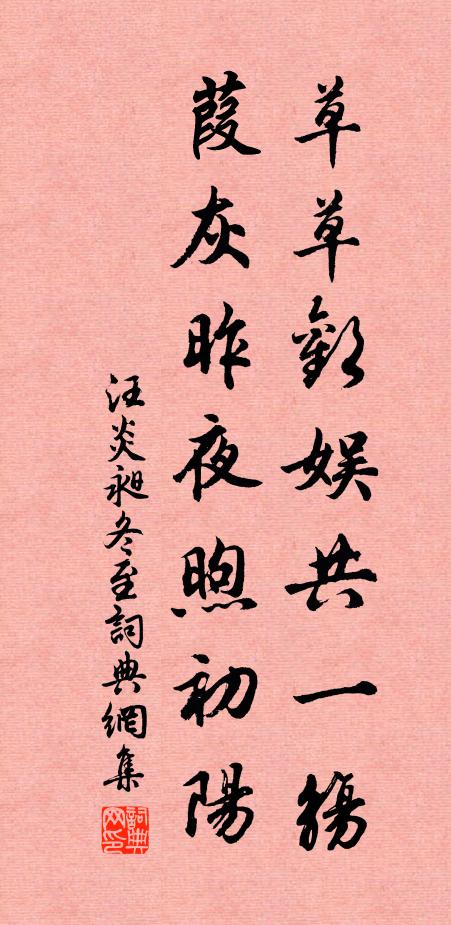 草草歡娱共一觴
葭灰昨夜煦初陽
汪炎昶冬至詞典網集
詞典网印